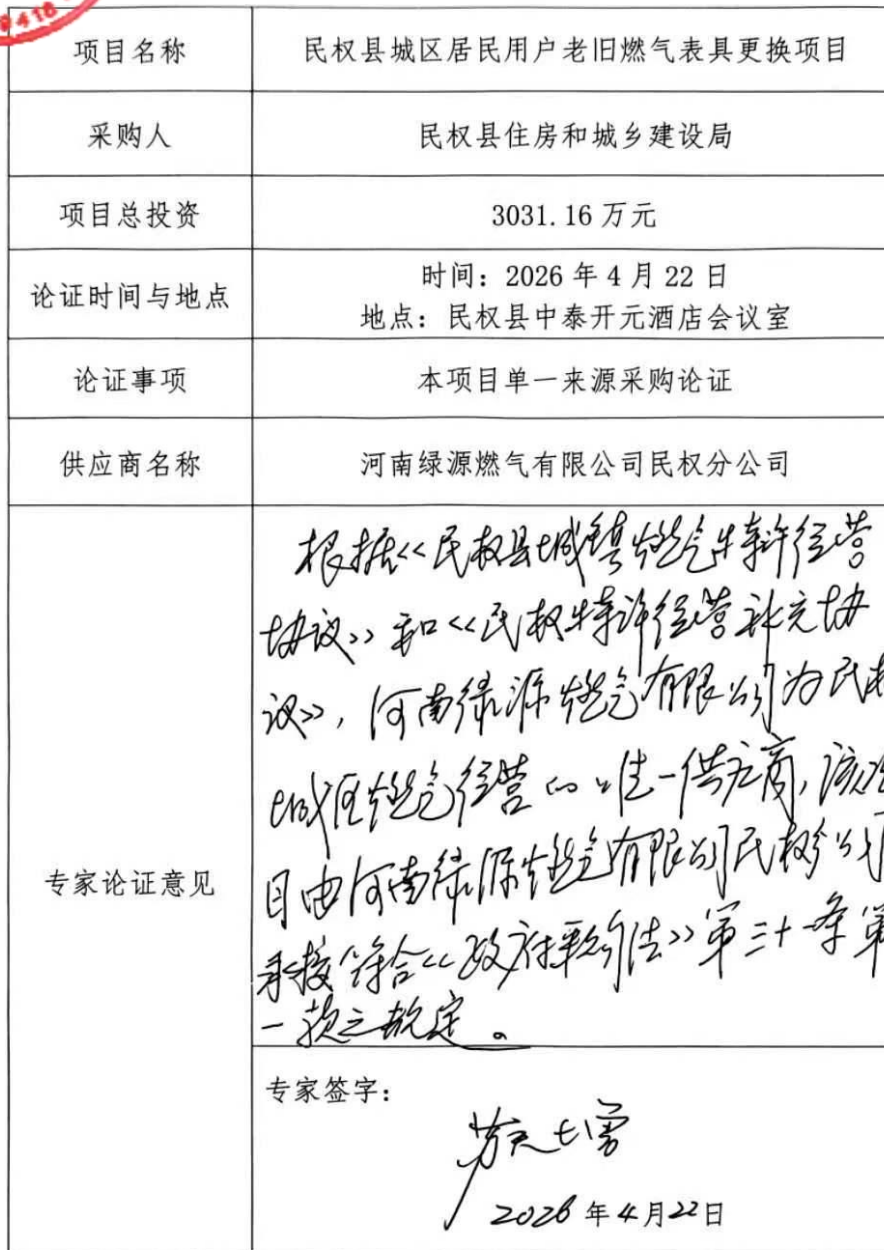 418
项目名称
民权县城区居民用户老旧燃气表具更换项目
采购人
民权县住房和城乡建设局
项目总投资
3031.16 万元
论证时间与地点
时间：2026 年 4 月 22 日
地点：民权县中泰开元酒店会议室
论证事项
本项目单一来源采购论证
供应商名称
河南绿源燃气有限公司民权分公司
专家论证意见
根据《民权县城镇燃气特许经营
协议》和《民权特许经营补充协
议》，河南绿源燃气有限公司为民权
城区燃气经营的唯一供应商，该项
目由河南绿源燃气有限公司民权分公司
承接符合《政府采购法》第三十一条第
一款之规定。
专家签字：
2026 年 4 月 22 日